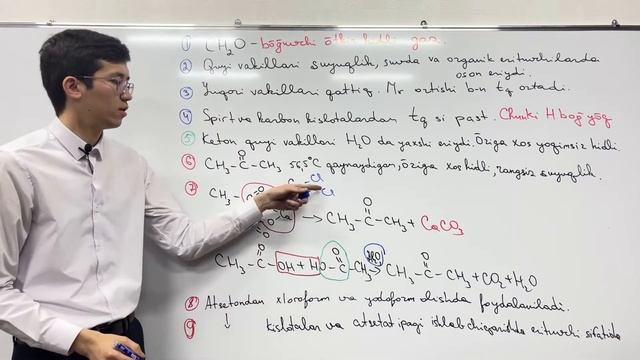 ① CH₂O - bõğuvchi õtkir hidli gaz.
② Quyi vakillari suyuqlik, suvda va organik erituvchilarda
oson eriydi.
③ Yuqori vakillari qattiq. Mr ortishi b-n tq ortadi.
④ Spirt va karbon kislotalardan tq si past. Chunki H boğ yõq
⑤ Keton quyi vakillari H₂O da yaxshi eriydi. Õziga xos yoqimsiz hidli.
⑥ CH₃-C(=O)-CH₃ 56,5°C qaynaydigan, õziga xos hidli, rangsiz suyuqlik.
⑦ CH₃- Cl Cl
→ CH₃-C(=O)-CH₃ + CaCO₃
CH₃-C(=O)-OH + HO-C(=O)-CH₃ → CH₃-C(=O)-CH₃ + CO₂ + H₂O
⑧ Atsetondan xloroform va yodoform olishda foydalaniladi.
⑨ ↓ kislotalar va atsetat ipagi ishlab chiqarishda erituvchi sifatida